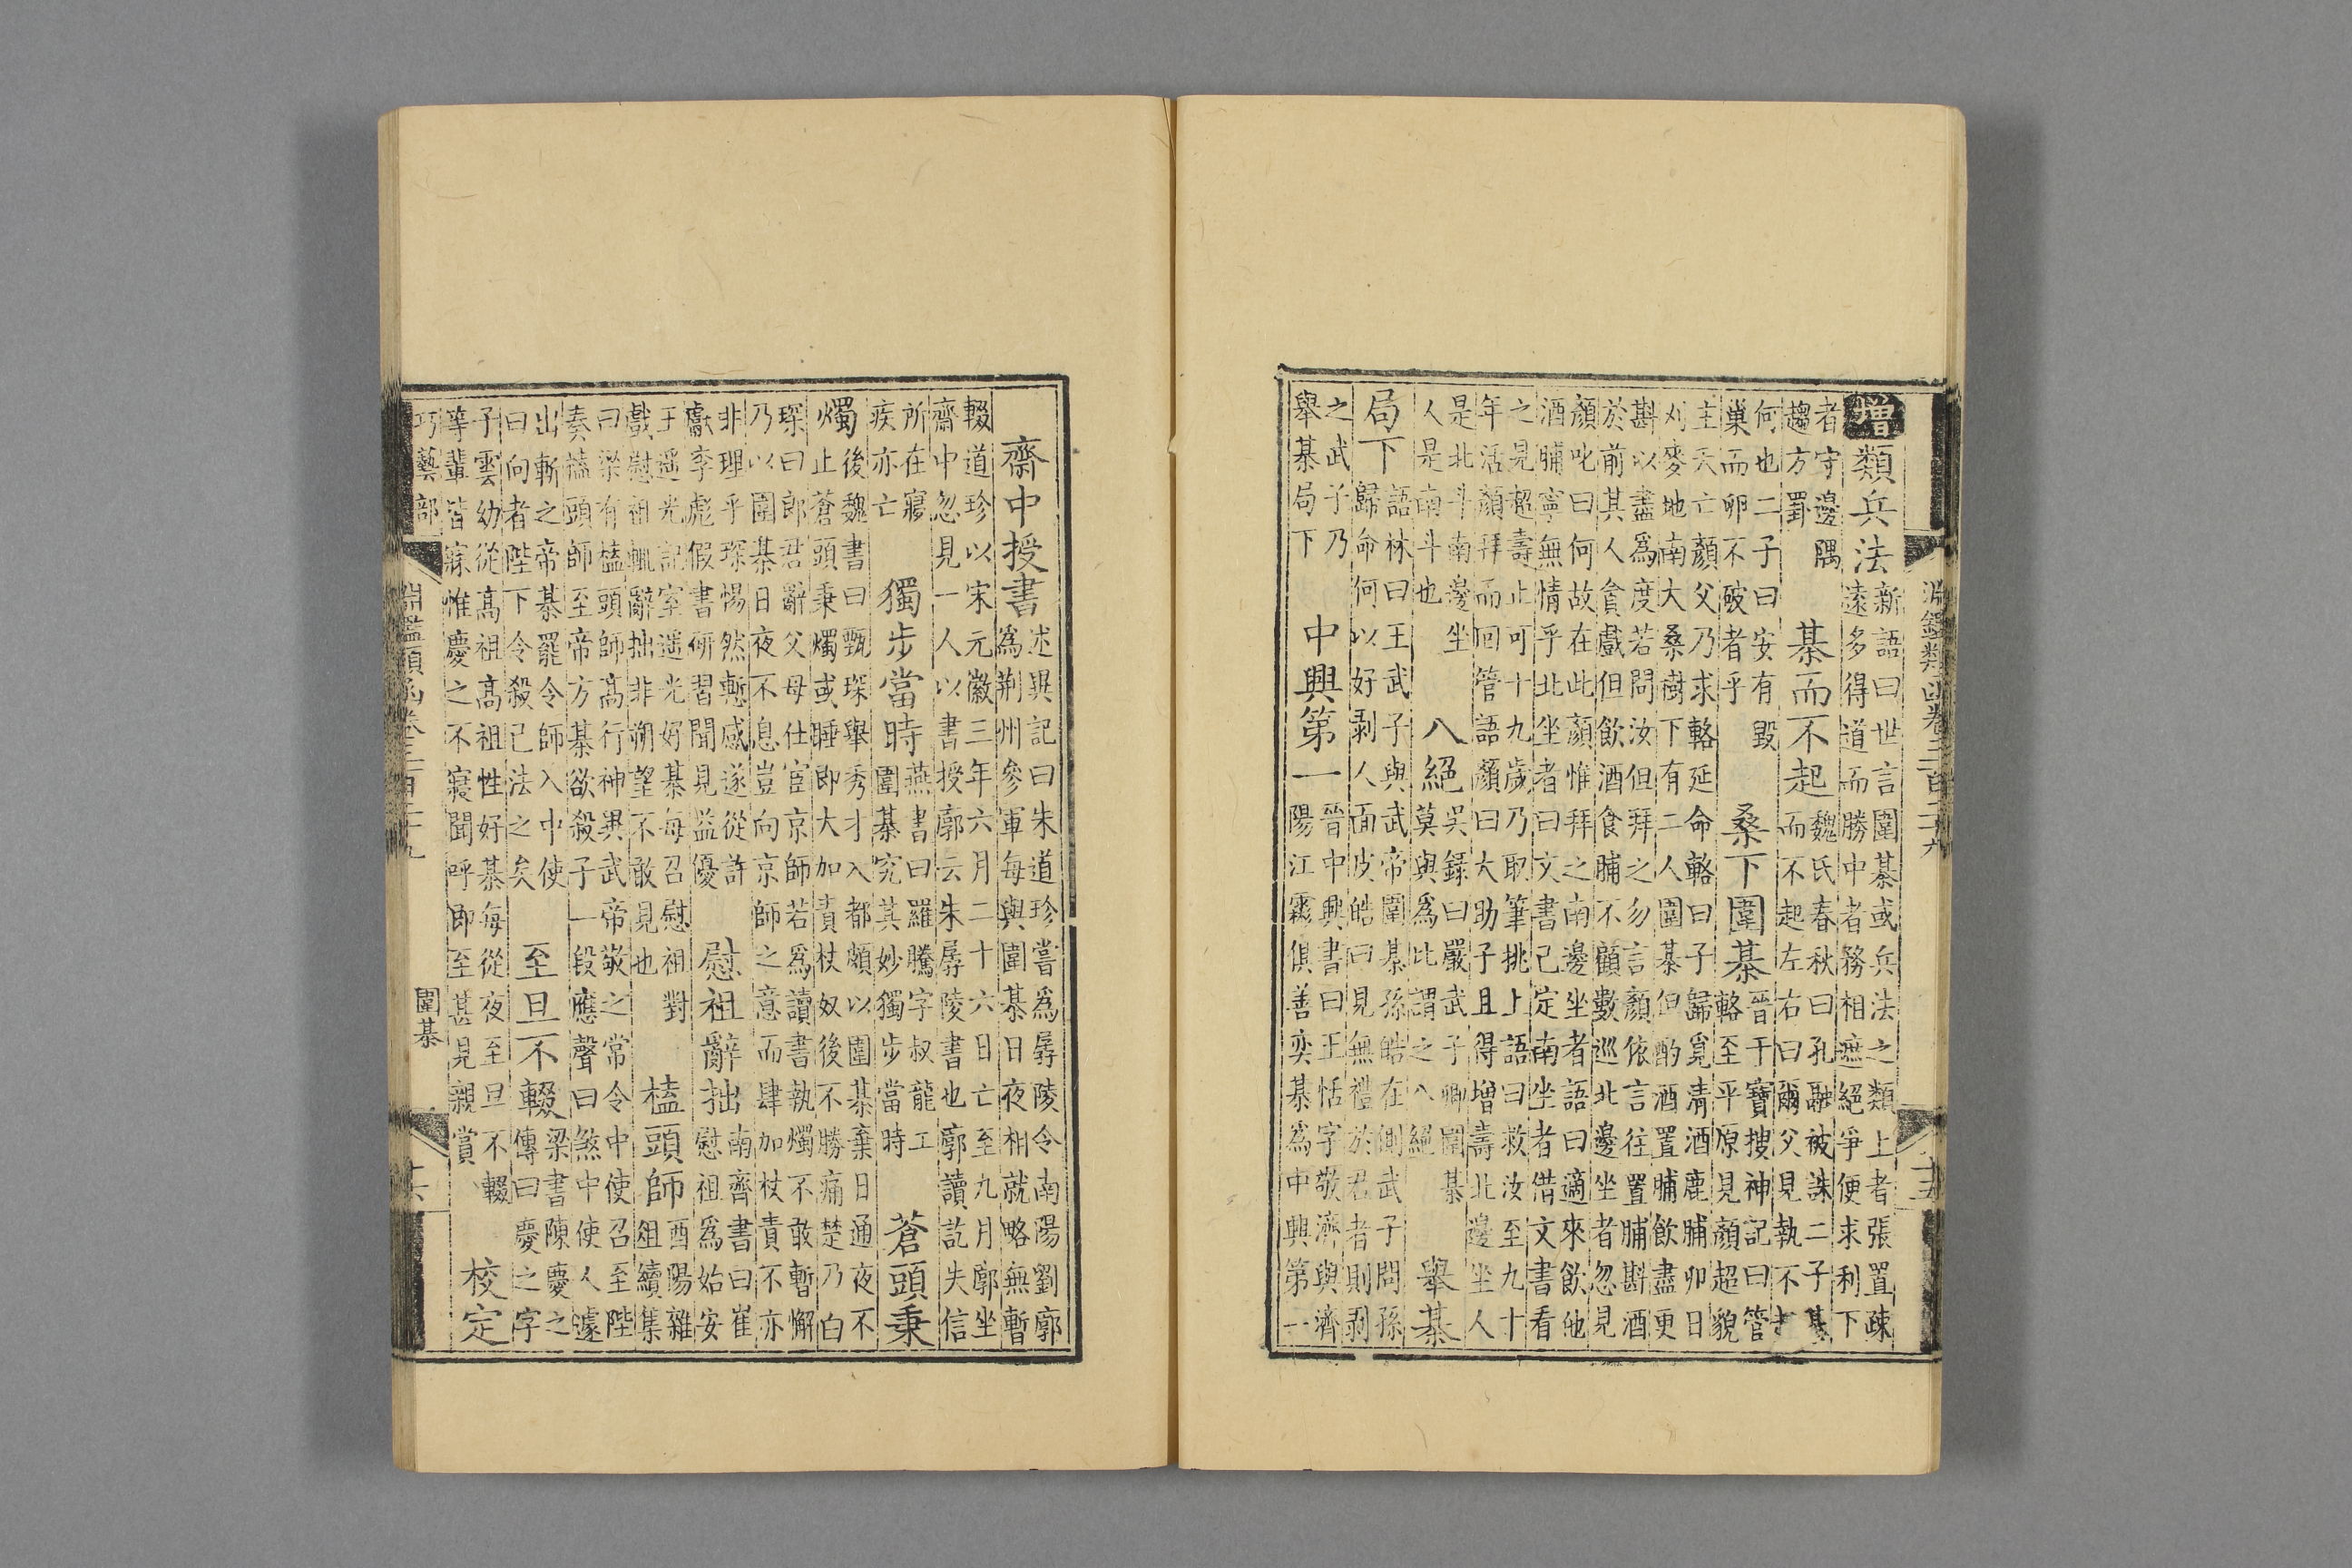 淵鑑類函卷三百二十九
十五
增
類兵法
新語曰世言圍棊或兵法之類上者張置疎
遠多得道而勝中者務相遮絕爭便求利下
者守邊隅
趨方罫
棊而不起
魏氏春秋曰孔融被誅二子棊
而不起左右曰爾父見執不
何也二子曰安有毀
巢而卵不破者乎
桑下圍棊
晉干寶搜神記曰管
輅至平原見顏超貌
主夭亡顏父乃求輅延命輅曰子歸覓清酒鹿脯卯日
刈麥地南大桑樹下有二人圍棊但酌酒置脯飲盡更
斟以盡為度若問汝但拜之勿言顏依言往置脯斟酒
於前其人貪戲但飲酒食脯不顧數巡北邊坐者忽見
顏叱曰何故在此顏惟拜之南邊坐者語曰適來飲他
酒脯寧無情乎北坐者曰文書已定南坐者借文書看
之見超壽止可十九歲乃取筆挑上語曰救汝至九十
年活顏拜而回管語顏曰大助子且得增壽北邊坐人
是北斗南邊坐
人是南斗也
八絕
吳錄曰嚴武子卿圍棊
莫與為比謂之八絕
舉棊
局下
語林曰王武子與武帝圍棊孫皓在側武子問孫
歸命何以好剥人面皮皓曰見無禮於君者則剥
之武子乃
舉棊局下
中興第一
晉中興書曰王恬字敬濟與濟
陽江霦俱善奕棊為中興第一
齋中授書
述異記曰朱道珍嘗為孱陵令南陽劉廓
為荆州參軍每與圍棊日夜相就略無暫
輟道珍以宋元徽三年六月二十六日亡至九月廓坐
齋中忽見一人以書授廓云朱孱陵書也廓讀訖失信
所在寢
疾亦亡
獨步當時
燕書曰羅騰字叔龍工
圍棊究其妙獨步當時
蒼頭秉
燭
後魏書曰甄琛舉秀才入都頗以圍棊棄日通夜不
止蒼頭秉燭或睡即大加責杖奴後不勝痛楚乃白
琛曰郎君辭父母仕宦京師若為讀書執燭不敢暫懈
乃以圍棊日夜不息豈向京師之意而肆加杖責不亦
非理乎琛惕然慙感遂從許
獻李彪假書研習聞見益優
慰祖辭拙
南齊書曰崔
慰祖為始安
王遥光記室遥光好棊每召慰祖對
戲慰祖輒辭拙非朔望不敢見也
榼頭師
酉陽雜
俎續集
曰梁有榼頭師高行神異武帝敬之常令中使召至陛
奏榼頭師至帝方棊欲殺子一段應聲曰煞中使人遽
出斬之帝棊罷令師入中使
曰向者陛下令殺已法之矣
至旦不輟
梁書陳慶之
傳曰慶之字
子雲幼從高祖高祖性好棊每從夜至旦不輟
等輩皆寐惟慶之不寢聞呼即至甚見親賞
校定
巧藝部
淵鑑類函卷三百二十九
圍棊
十六